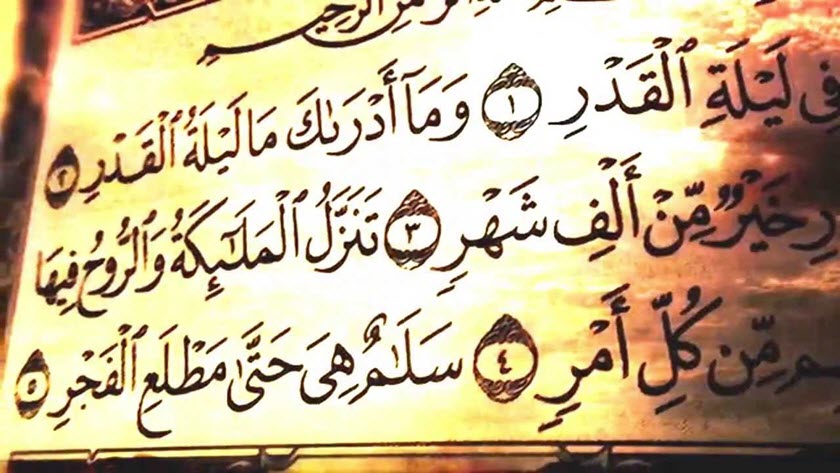 الرَّحْمَٰنِ الرَّحِيمِ
فِى لَيْلَةِ ٱلْقَدْرِ ١ وَمَآ أَدْرَىٰكَ مَا لَيْلَةُ ٱلْقَدْرِ ٢
خَيْرٌ مِّنْ أَلْفِ شَهْرٍ ٣ تَنَزَّلُ ٱلْمَلَٰٓئِكَةُ وَٱلرُّوحُ فِيهَا
مِّن كُلِّ أَمْرٍ ٤ سَلَٰمٌ هِىَ حَتَّىٰ مَطْلَعِ ٱلْفَجْرِ ٥